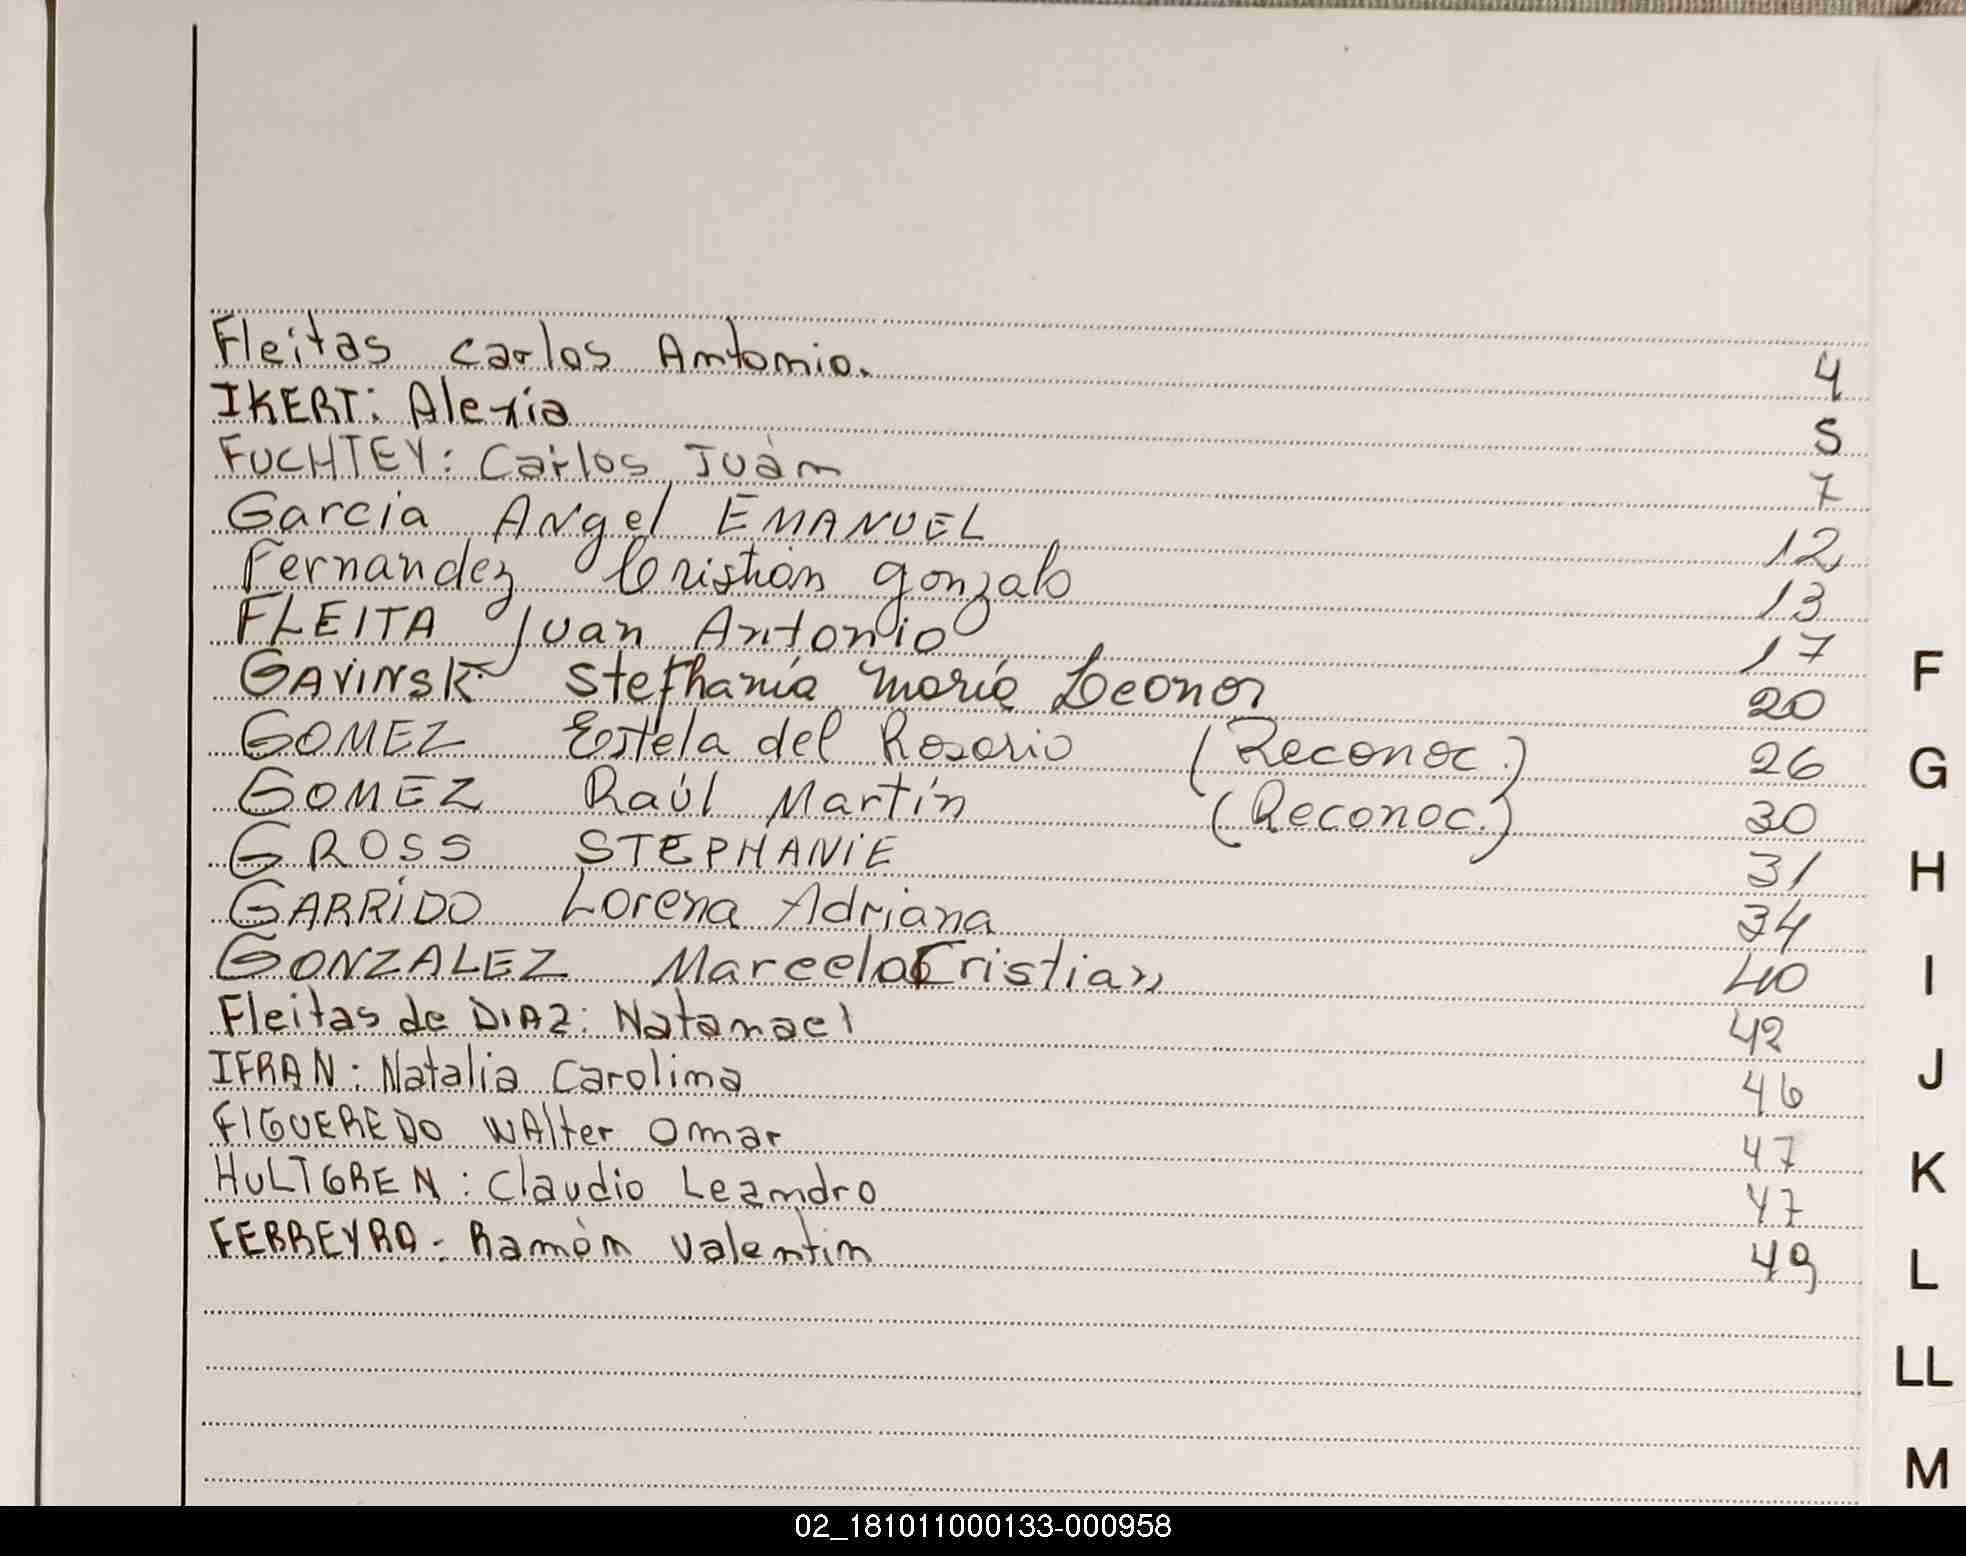 Fleitas Carlos Antonio. 4
IKERT: Alexia 5
FUCHTEY: Carlos Juán 7
Garcia Angel EMANUEL 12
Fernandez Cristian gonzalo 13
FLEITA Juan Antonio 17
GAVINSKI Stephania María Leonor 20
GOMEZ Estela del Rosario (Reconoc.) 26
GOMEZ Raúl Martín (Reconoc.) 30
GROSS STEPHANIE 31
GARRIDO Lorena Adriana 34
GONZALEZ Marcelo Cristian 40
Fleitas de DIAZ: Natanael 42
IFRAN: Natalia Carolina 46
FIGUEREDO WAlter Omar 47
HULTGREN: Claudio Leandro 47
FERREYRA: Ramón Valentin 49
F
G
H
I
J
K
L
LL
M
02_181011000133-000958